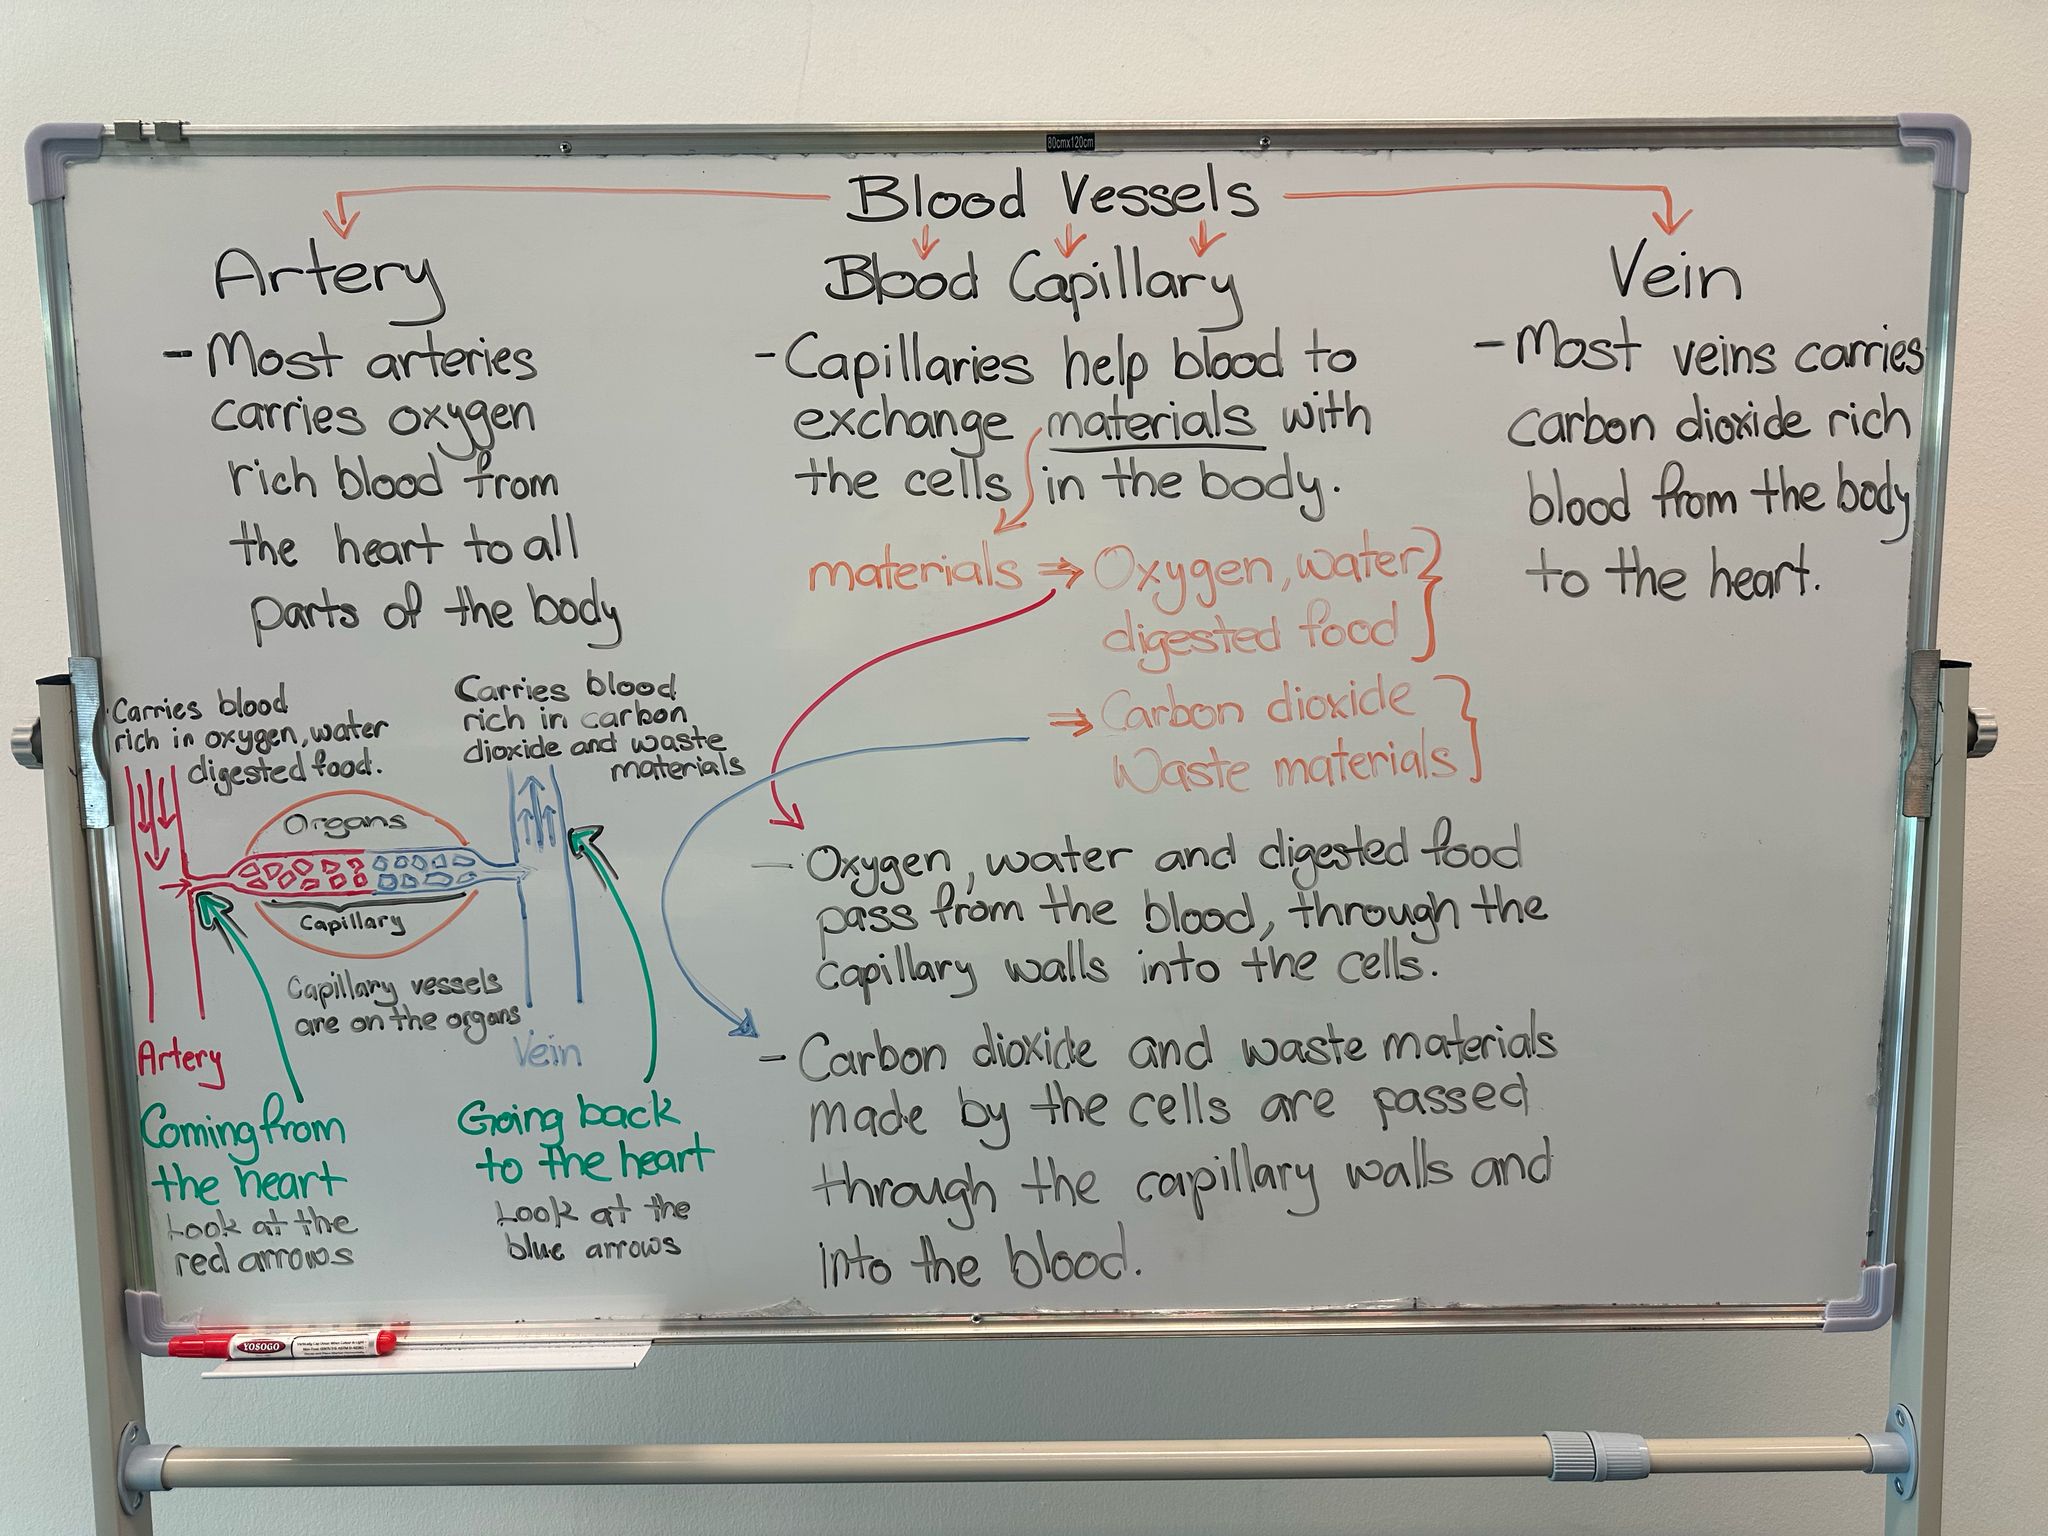 80cmx120cm
Blood Vessels
Artery
- Most arteries
carries oxygen
rich blood from
the heart to all
parts of the body
Blood Capillary
- Capillaries help blood to
exchange materials with
the cells in the body.
materials ⇒ Oxygen, water
digested food
⇒ Carbon dioxide
Waste materials
- Oxygen, water and digested food
pass from the blood, through the
capillary walls into the cells.
- Carbon dioxide and waste materials
made by the cells are passed
through the capillary walls and
into the blood.
Vein
- Most veins carries
carbon dioxide rich
blood from the body
to the heart.
Carries blood
rich in oxygen, water
digested food.
Carries blood
rich in carbon
dioxide and waste
materials
Organs
Capillary
Capillary vessels
are on the organs
Artery
Vein
Coming from
the heart
Look at the
red arrows
Going back
to the heart
Look at the
blue arrows
YOSOGO